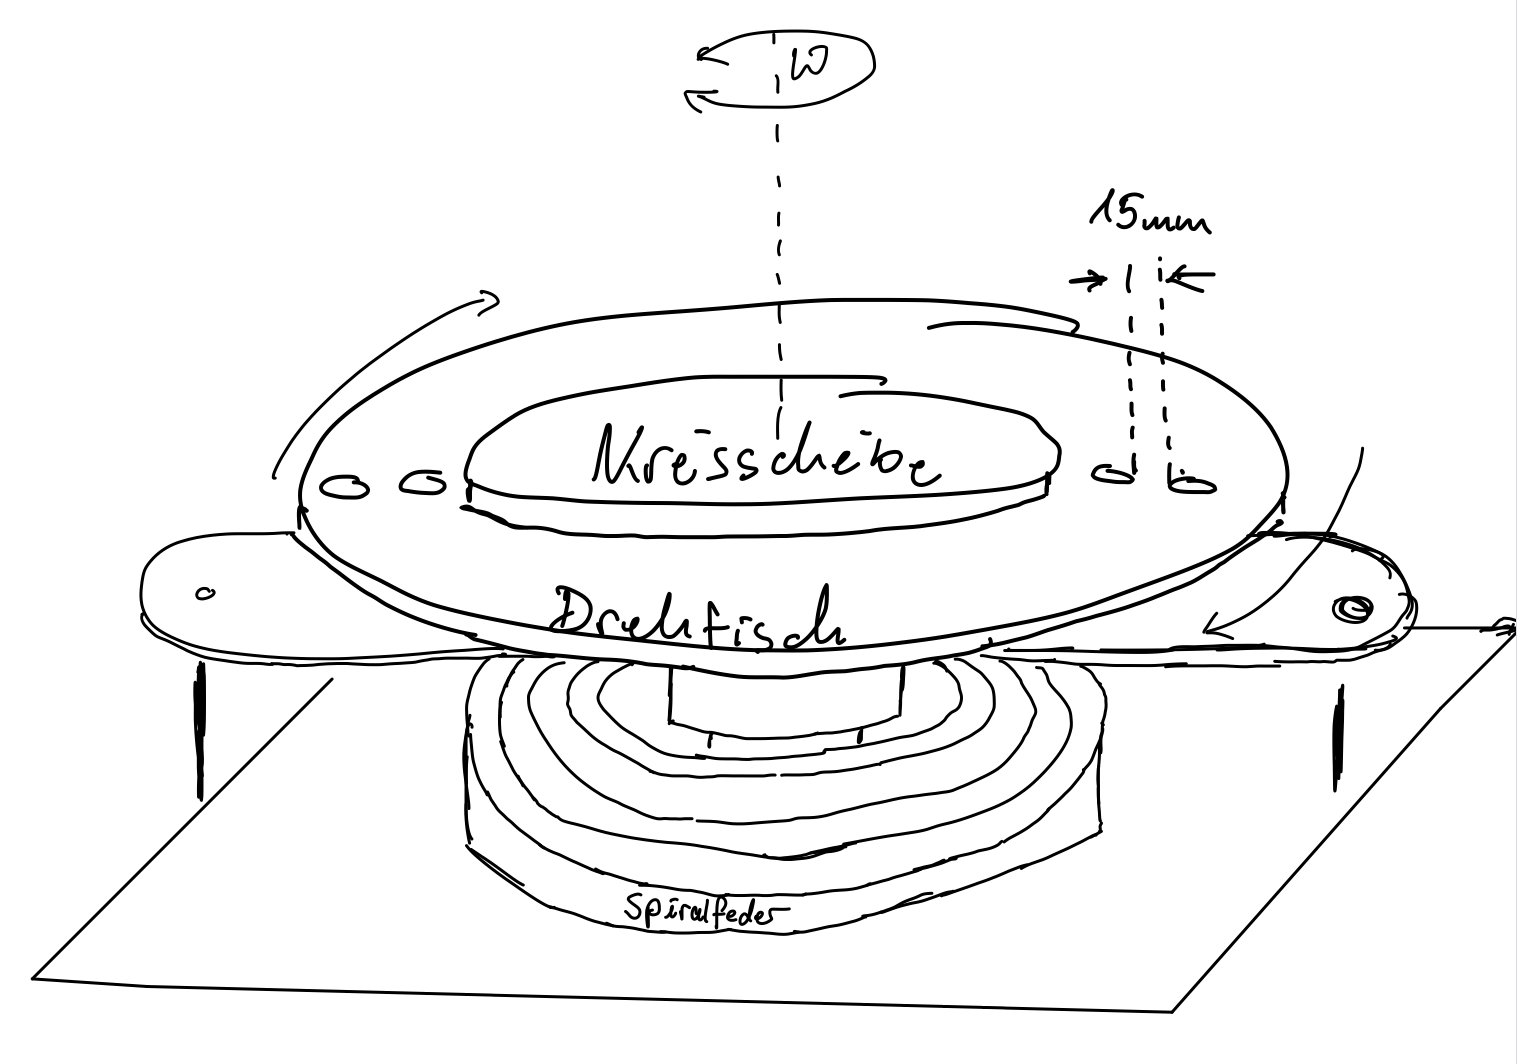 ω
15mm
Kreisscheibe
Drehtisch
Spiralfeder